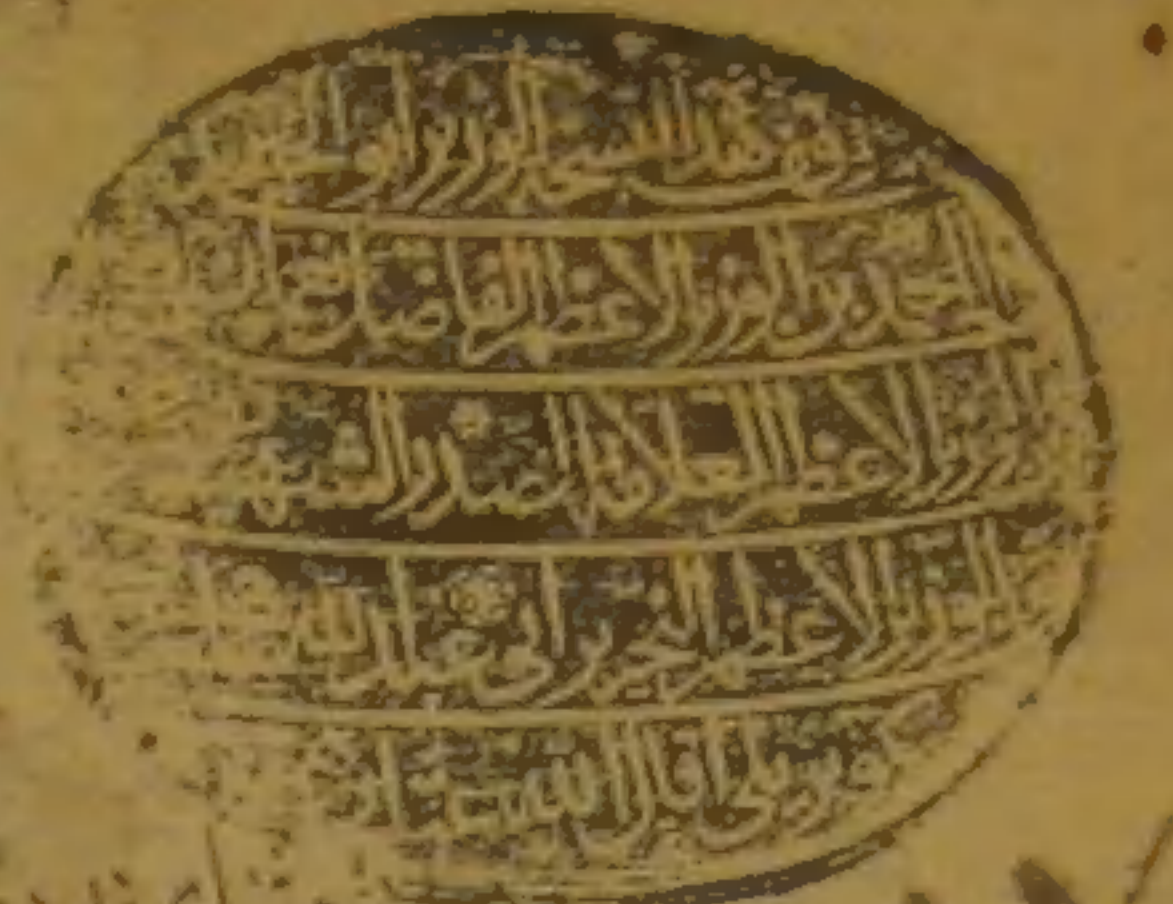 وقف هذا الوزير ابو
احمد بن الوزير الاعظم الفاضل نعمان
الوزير الاعظم العلامة الصدر الشهيد
الوزير الاعظم النحرير ابي عبد الله
بكوبريلي اقال الله عثارهم